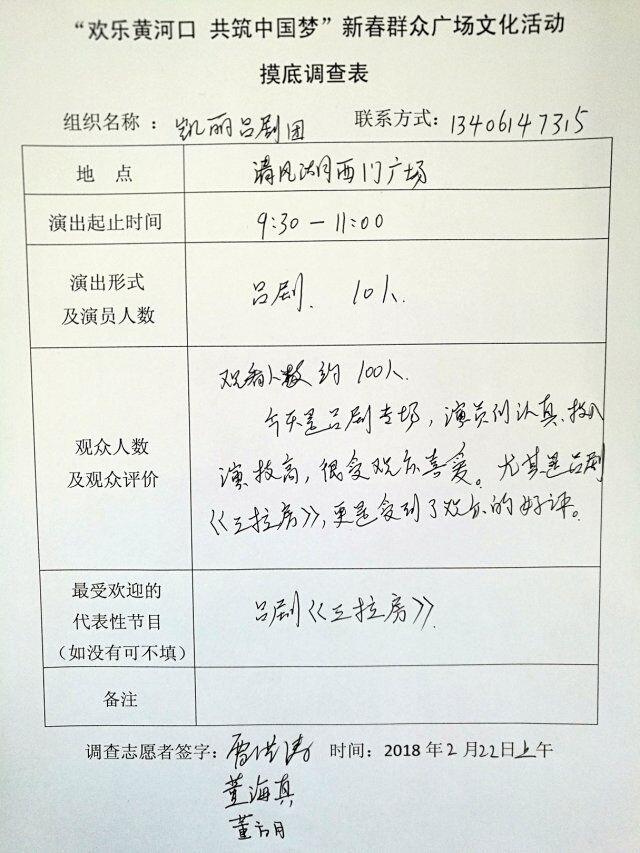 “欢乐黄河口 共筑中国梦”新春群众广场文化活动
摸底调查表
组织名称：凯丽吕剧团 联系方式：13406147315
地 点 清风湖西门广场
演出起止时间 9:30－11:00
演出形式
及演员人数
吕剧、10人.
观众人数
及观众评价
观看人数约100人.
今天是吕剧专场，演员们认真、投入
演技高，很受观众喜爱。尤其是吕剧
《三拉房》，更是受到了观众的好评。
最受欢迎的
代表性节目
（如没有可不填）
吕剧《三拉房》.
备注
调查志愿者签字：洪涛 时间：2018年2月22日上午
董海真
董